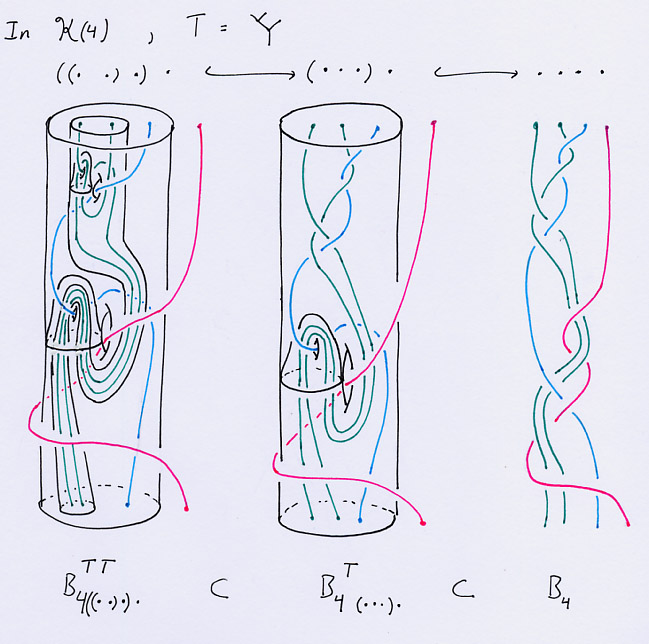 In K(4) , T = Y
((· ·) ·) · ⟷ (· · ·) · ⟷ · · · ·
B₄₍₍..₎.₎.ᵀᵀ ⊂ B₄₍...₎.ᵀ ⊂ B₄